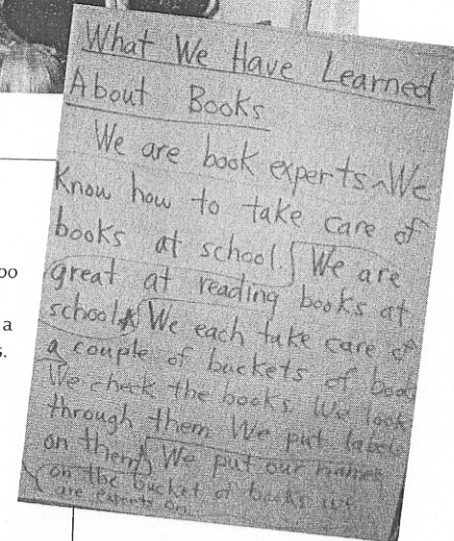 What We Have Learned
About Books
We are book experts ^ We
Know how to take care of
books at school. We are
great at reading books at
school. We each take care of
a couple of buckets of book
We check the books. We look
through them We put labels
on them. We put our names
on the bucket of books we
are experts on.
oo
a
s.